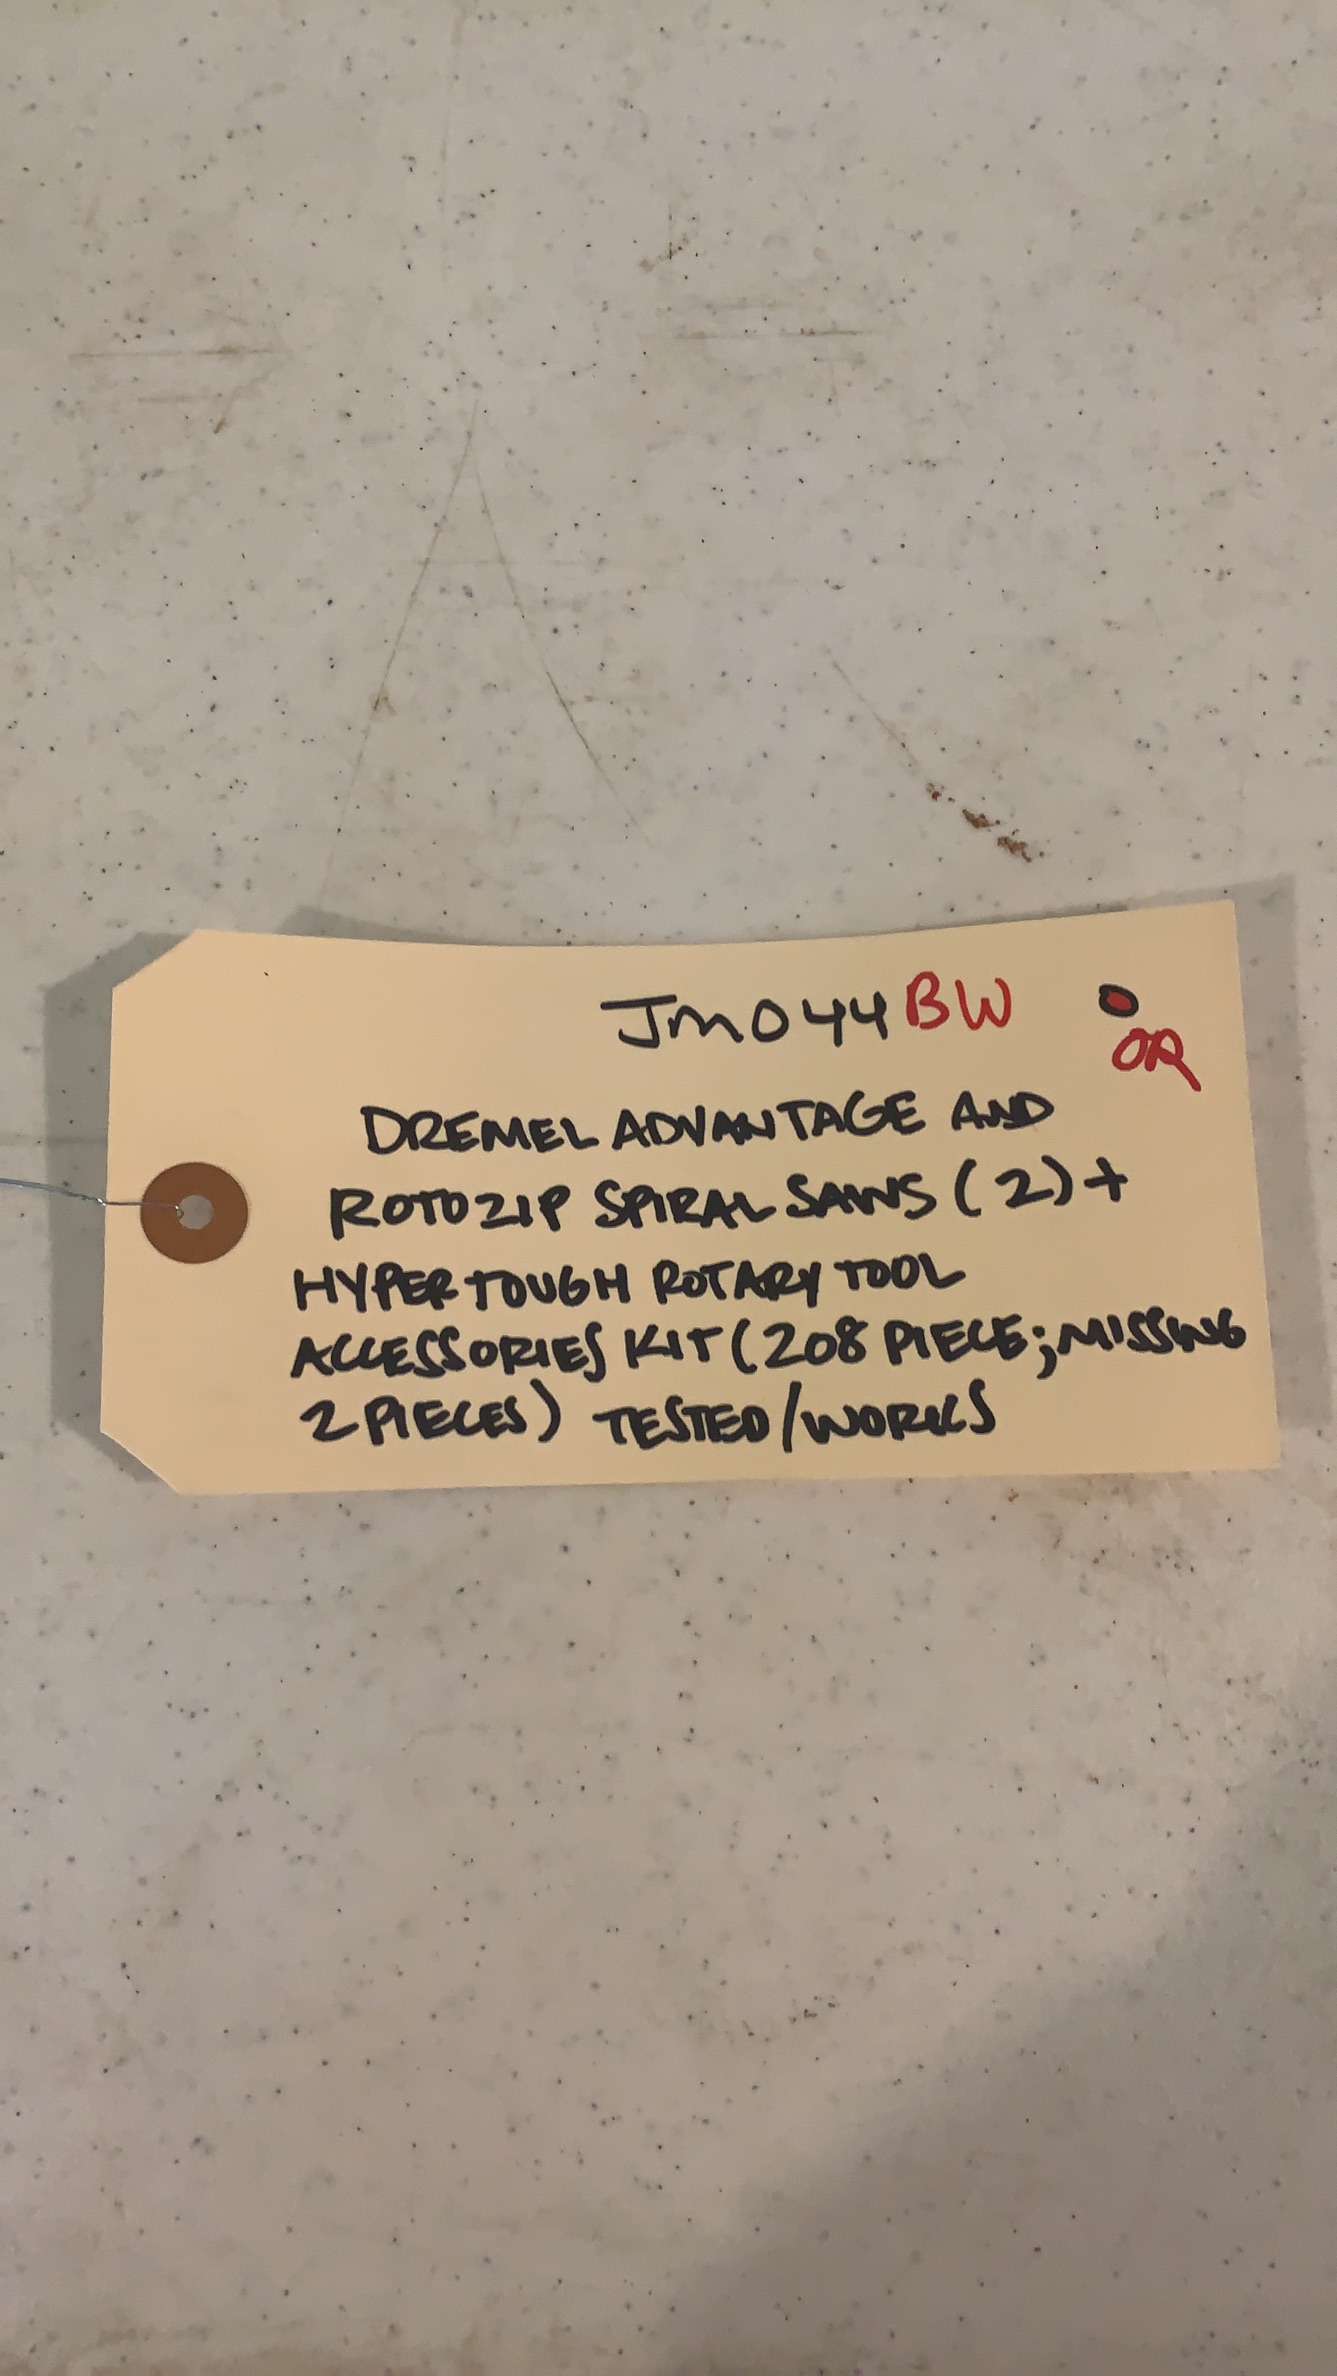 JM044BW
OR
DREMEL ADVANTAGE AND
ROTOZIP SPIRAL SAWS (2) +
HYPER TOUGH ROTARY TOOL
ACCESSORIES KIT (208 PIECE; MISSING
2 PIECES) TESTED/WORKS